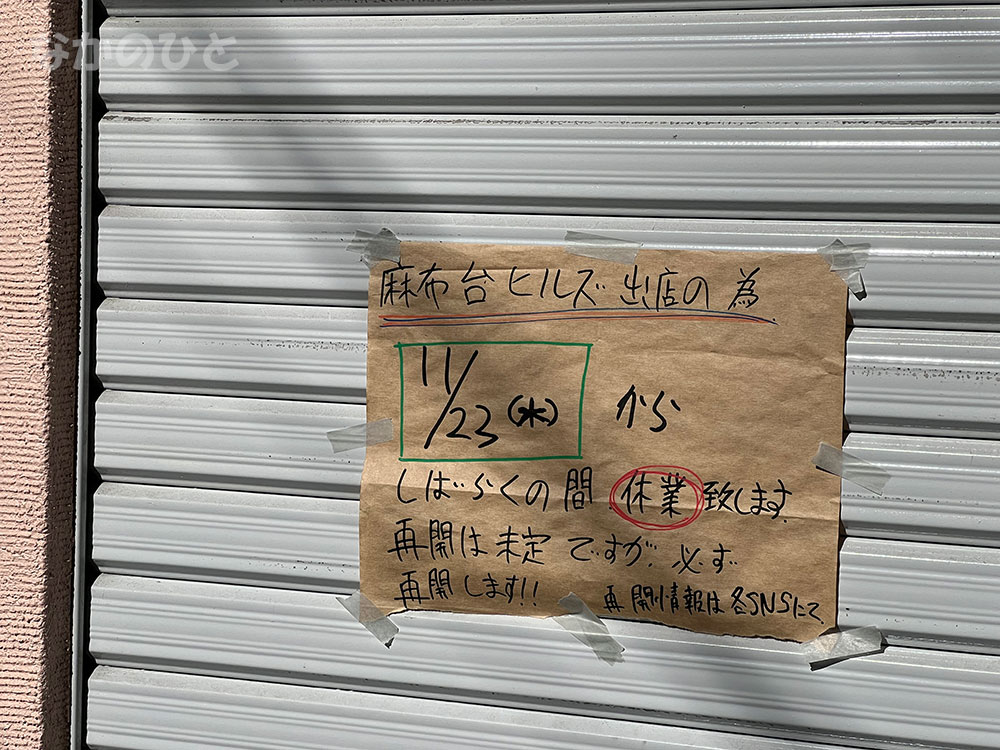 なかのひと
麻布台ヒルズ出店の為
11/23(水)から
しばらくの間 休業致します。
再開は未定ですが、必ず
再開します!!
再開情報は各SNSにて